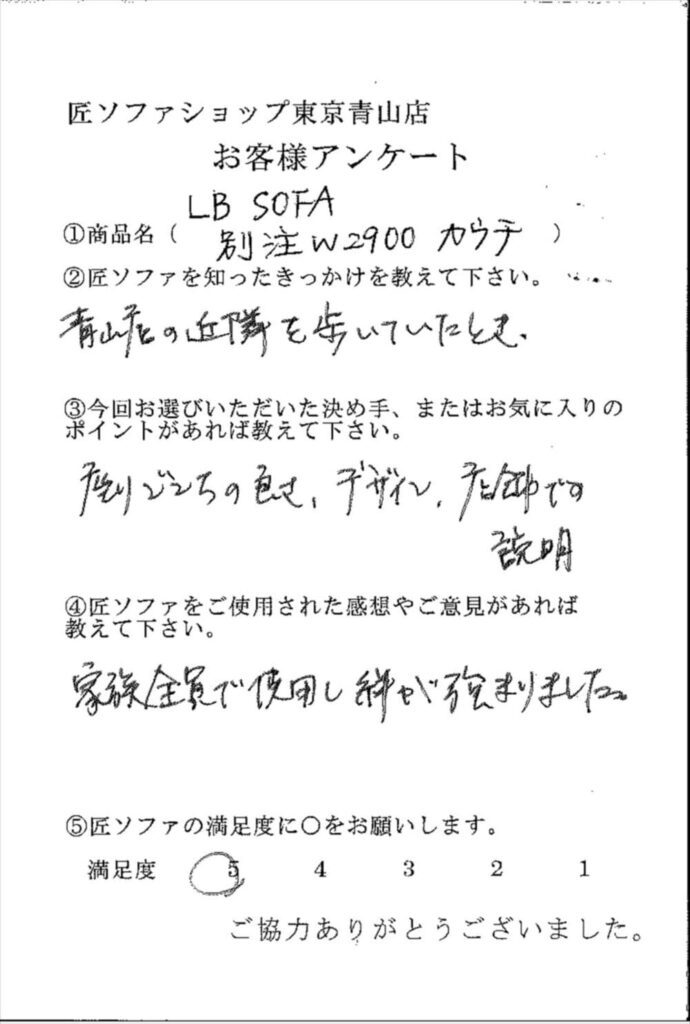 匠ソファショップ東京青山店
お客様アンケート
LB SOFA
①商品名（ 別注W2900 カウチ ）
②匠ソファを知ったきっかけを教えて下さい。
青山店の近隣を歩いていたとき、
③今回お選びいただいた決め手、またはお気に入りの
ポイントがあれば教えて下さい。
座りごこちの良さ、デザイン、店舗での
説明
④匠ソファをご使用された感想やご意見があれば
教えて下さい。
家族全員で使用し絆が強まりました。
⑤匠ソファの満足度に○をお願いします。
満足度 5 4 3 2 1
ご協力ありがとうございました。